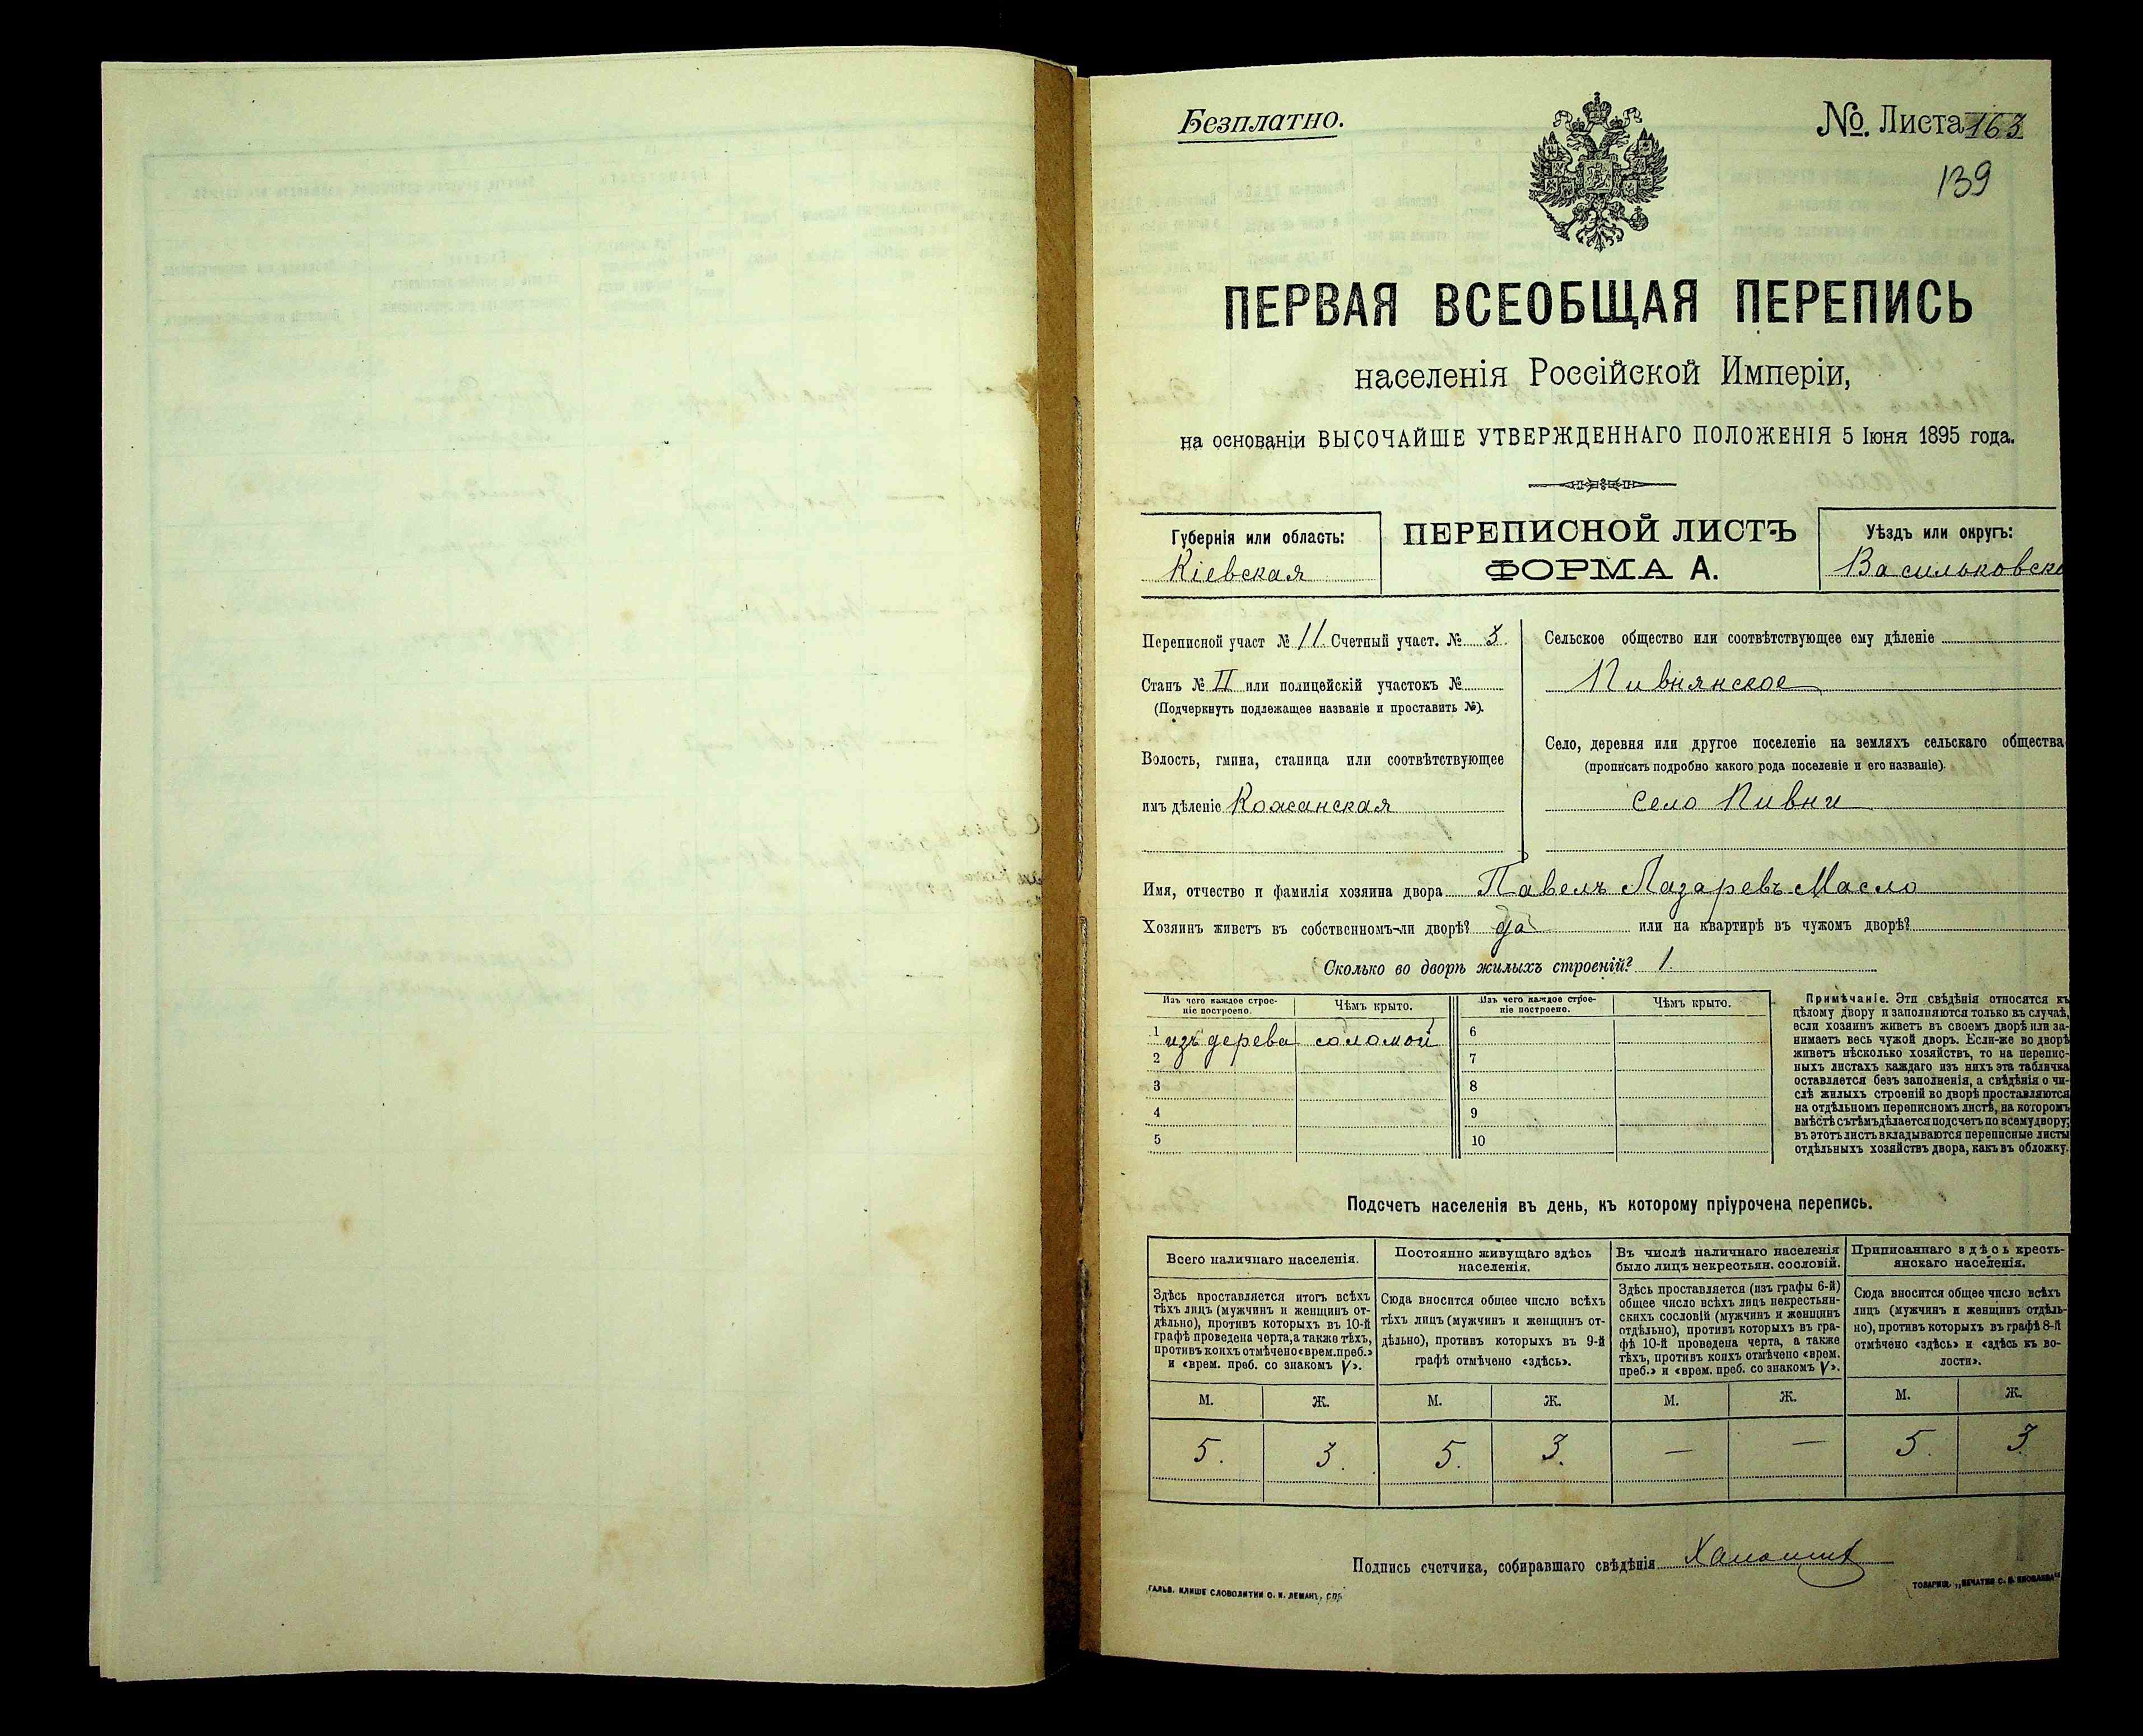 Безплатно.
№. Листа 163
139
ПЕРВАЯ ВСЕОБЩАЯ ПЕРЕПИСЬ
населенія Россійской Имперіи,
на основаніи ВЫСОЧАЙШЕ УТВЕРЖДЕННАГО ПОЛОЖЕНІЯ 5 Іюня 1895 года.
Губернія или область:
Кіевская
ПЕРЕПИСНОЙ ЛИСТЪ
ФОРМА А.
Уѣздъ или округъ:
Васильковск
Переписной участ № 11. Счетный участ. № 3.
Станъ № II или полицейскій участокъ №
(Подчеркнуть подлежащее названіе и проставить №).
Волость, гмина, станица или соотвѣтствующее
имъ дѣленіе Кожанская
Сельское общество или соотвѣтствующее ему дѣленіе
Пивнянское
Село, деревня или другое поселеніе на земляхъ сельскаго общества
(прописать подробно какого рода поселеніе и его названіе).
Село Пивни
Имя, отчество и фамилія хозяина двора Павелъ Лазаревъ Масло
Хозяинъ живетъ въ собственномъ-ли дворѣ? да или на квартирѣ въ чужомъ дворѣ?
Сколько во дворѣ жилыхъ строеній? 1.
Изъ чего каждое строе-
ніе построено.
Чѣмъ крыто.
1 изъ дерева соломой
2
3
4
5
Изъ чего каждое строе-
ніе построено.
Чѣмъ крыто.
6
7
8
9
10
Примѣчаніе. Эти свѣдѣнія относятся къ
цѣлому двору и заполняются только въ случаѣ,
если хозяинъ живетъ въ своемъ дворѣ или за-
нимаетъ весь чужой дворъ. Если-же во дворѣ
живетъ нѣсколько хозяйствъ, то на перепис-
ныхъ листахъ каждаго изъ нихъ эта табличка
оставляется безъ заполненія, а свѣдѣнія о чи-
слѣ жилыхъ строеній во дворѣ проставляются
на отдѣльномъ переписномъ листѣ, на которомъ
вмѣстѣ съ тѣмъ дѣлается подсчетъ по всему двору;
въ этотъ листъ вкладываются переписные листы
отдѣльныхъ хозяйствъ двора, какъ въ обложку.
Подсчетъ населенія въ день, къ которому пріурочена перепись.
Всего наличнаго населенія.
Здѣсь проставляется итогъ всѣхъ
тѣхъ лицъ (мужчинъ и женщинъ от-
дѣльно), противъ которыхъ въ 10-й
графѣ проведена черта, а также тѣхъ,
противъ коихъ отмѣчено «врем. преб.»
и «врем. преб. со знакомъ V».
М. Ж.
5. 3.
Постоянно живущаго здѣсь
населенія.
Сюда вносится общее число всѣхъ
тѣхъ лицъ (мужчинъ и женщинъ от-
дѣльно), противъ которыхъ въ 9-й
графѣ отмѣчено «здѣсь».
М. Ж.
5. 3.
Въ числѣ наличнаго населенія
было лицъ некрестьян. сословій.
Здѣсь проставляется (изъ графы 6-й)
общее число всѣхъ лицъ некрестьян-
скихъ сословій (мужчинъ и женщинъ
отдѣльно), противъ которыхъ въ гра-
фѣ 10-й проведена черта, а также
тѣхъ, противъ коихъ отмѣчено «врем.
преб.» и «врем. преб. со знакомъ V».
М. Ж.
— —
Приписаннаго здѣсь кресть-
янскаго населенія.
Сюда вносится общее число всѣхъ
лицъ (мужчинъ и женщинъ отдѣль-
но), противъ которыхъ въ графѣ 8-й
отмѣчено «здѣсь» и «здѣсь къ во-
лости».
М. Ж.
5. 3.
Подпись счетчика, собиравшаго свѣдѣнія
ГАЛЬВ. КЛИШЕ СЛОВОЛИТНИ О. И. ЛЕМАНЪ, СПБ.
ТОВАРИЩ. „ПЕЧАТНЯ С. П. ЯКОВЛЕВА"